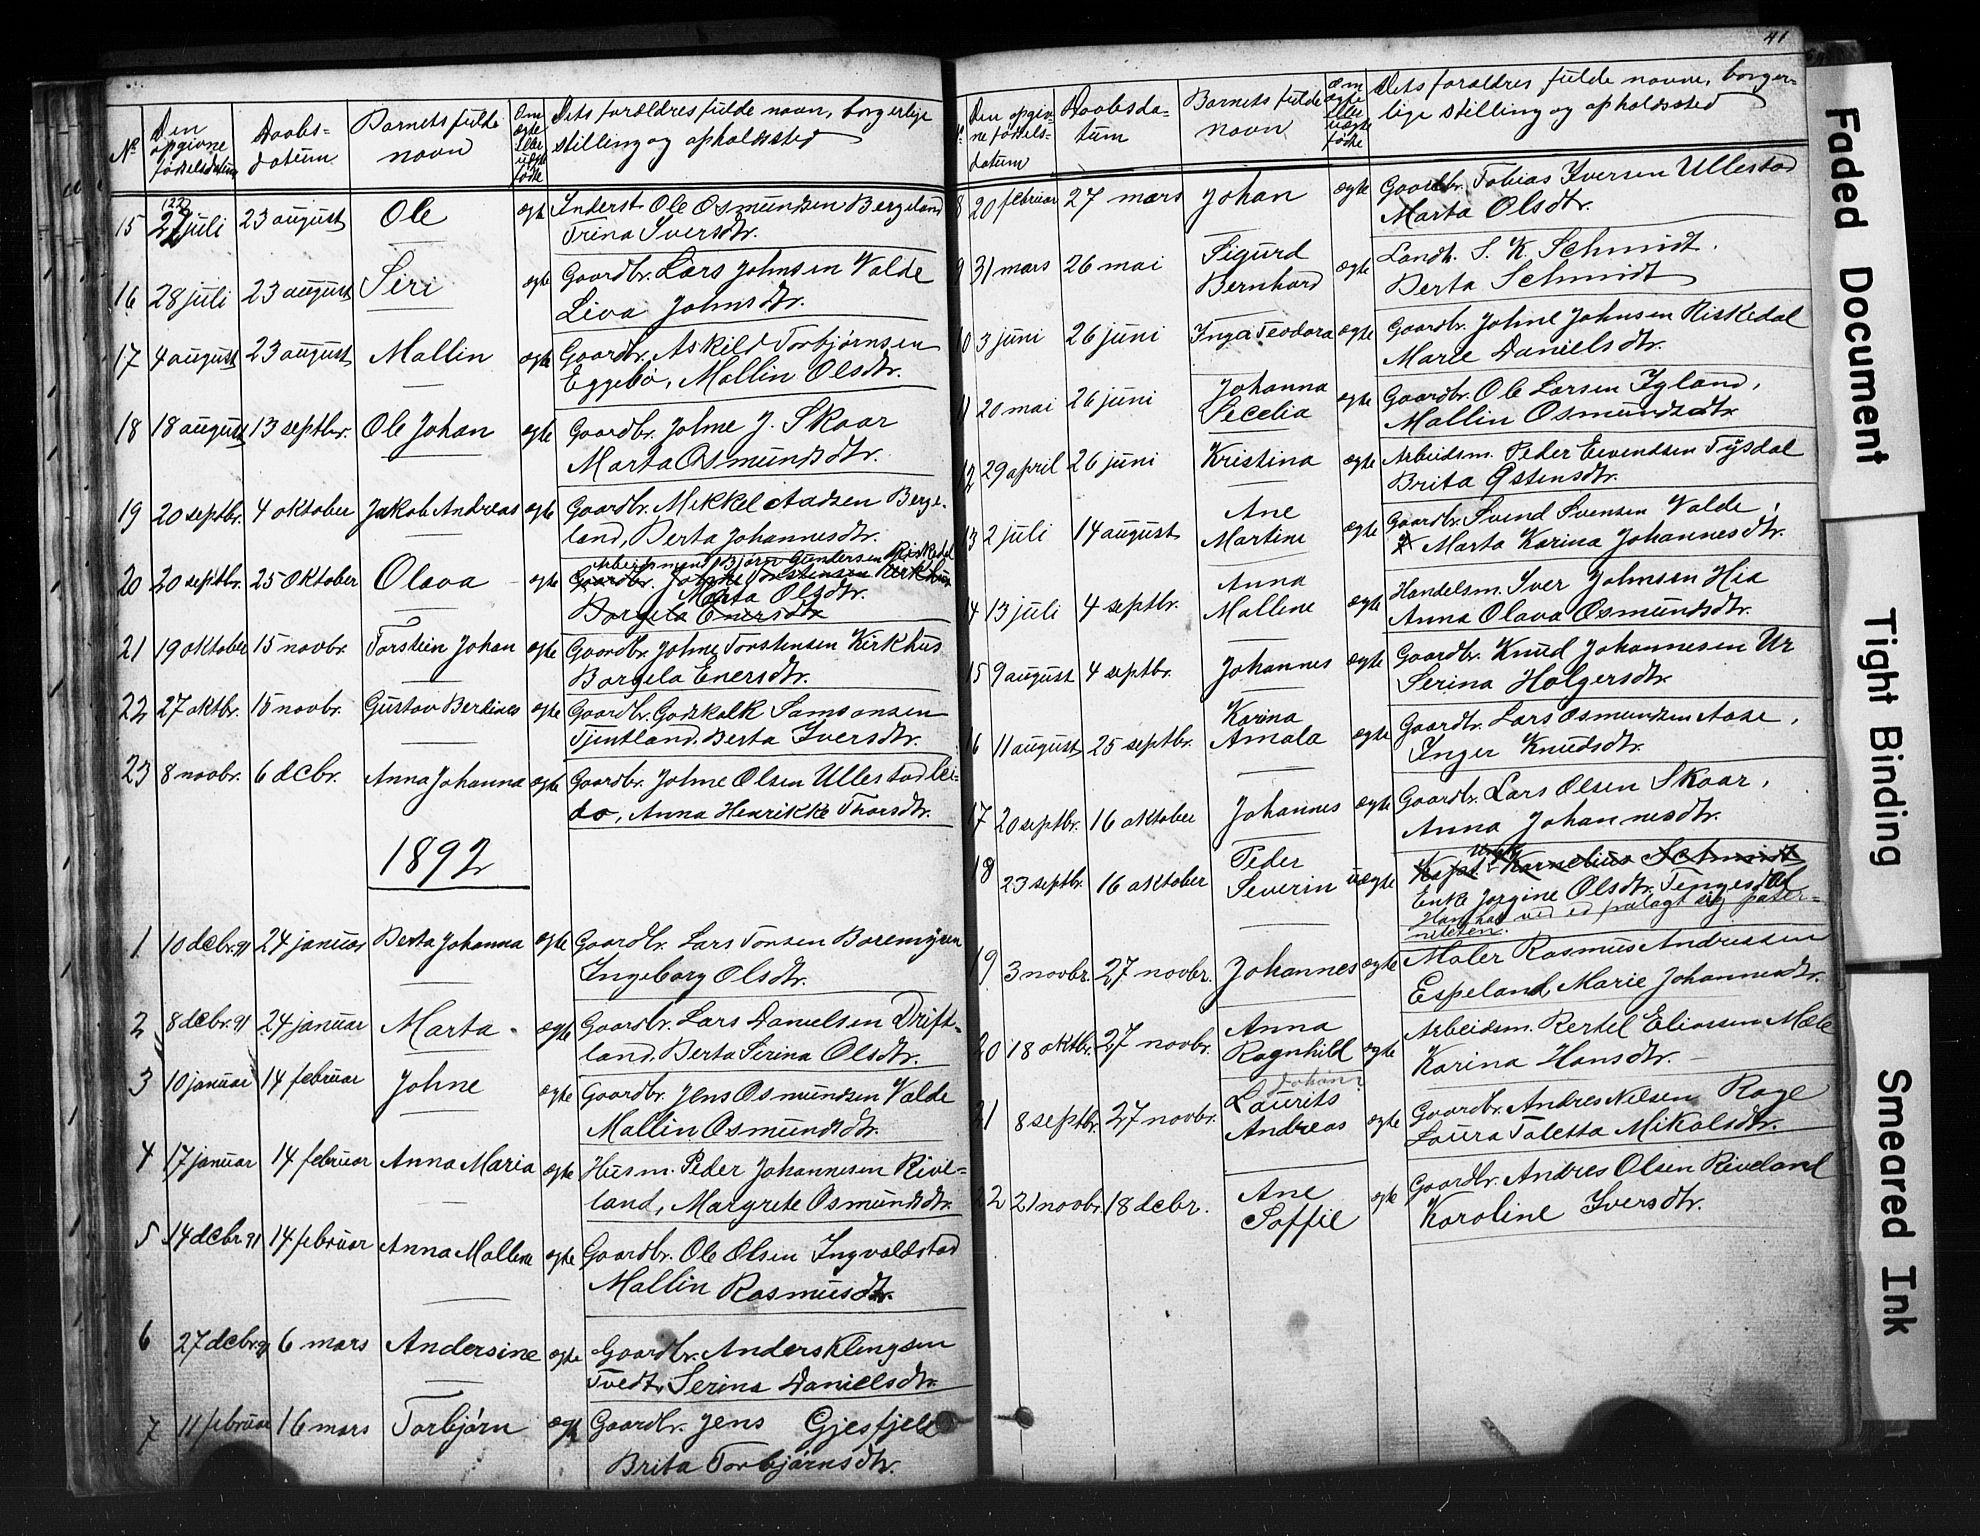 41
No | Den opgivne fødselsdatum | Daabsdatum | Barnets fulde navn | Om ægte eller uægte født | Dets forældres fulde navn, borgerlige stilling og opholdssted
15 | 27 juli (22) | 23 august | Ole | ægte | Inderst Ole Osmundsen Bergeland
Trina Iversdtr.
16 | 28 juli | 23 august | Siri | ægte | Gaardbr. Lars Johnsen Valde
Liva Johnsdtr.
17 | 4 august | 23 august | Mallin | ægte | Gaardbr. Askild Torbjørnsen
Eggebø, Mallin Olsdtr.
18 | 18 august | 13 septbr. | Ole Johan | ægte | Gaardbr. Johne J. Skaar
Marta Osmundsdtr.
19 | 20 septbr. | 4 oktober | Jakob Andreas | ægte | Gaardbr. Mikkel Aadsen Berge-
land, Berta Johannesdtr.
Arbeidsmand Bjørn Gundersen Riskedal
20 | 20 septbr. | 25 oktober | Olava | ægte | Gaardbr. Johne Torstensen Kirkhus
Marta Olsdtr.
Borgela Enersdtr.
21 | 19 oktober | 15 novbr. | Torstein Johan | ægte | Gaardbr. Johne Torstensen Kirkhus
Borgela Enersdtr.
22 | 27 oktbr. | 15 novbr. | Gustav Berdines | ægte | Gaardbr. Godskalk Samsonsen
Tjentland. Berta Iversdtr.
23 | 8 novbr. | 6 dcbr. | Anna Johanna | ægte | Gaardbr. Johne Olsen Ullestadlei-
do, Anna Henrikke Thorsdtr.
1892
1 | 10 dcbr. 91 | 24 januar | Berta Johanna | ægte | Gaardbr. Lars Tonsen Boremyren
Ingeborg Olsdtr.
2 | 8 dcbr. 91 | 24 januar | Marta | ægte | Gaardbr. Lars Danielsen Drift-
land. Berta Serina Olsdtr.
3 | 10 januar | 14 februar | Johne | ægte | Gaardbr. Jens Osmundsen Valde
Mallin Osmundsdtr.
4 | 17 januar | 14 februar | Anna Maria | ægte | Husm. Peder Johannesen Rive-
land, Margrete Osmundsdtr.
5 | 14 dcbr 91 | 14 februar | Anna Mallene | ægte | Gaardbr. Ole Olsen Ingvaldstad
Mallin Rasmusdtr.
6 | 27 dcbr. 91 | 6 mars | Andersine | ægte | Gaardbr. Anders Klengsen
Tvedt, Serina Danielsdtr.
7 | 11 februar | 16 mars | Torbjørn | ægte | Gaardbr. Jens Gjesfjeld
Brita Torbjørnsdtr.
No | Den opgivne fødselsdatum | Daabsdatum | Barnets fulde navn | Om ægte eller uægte født | Dets forældres fulde navne, borgerlige stilling og opholdssted
8 | 20 februar | 27 mars | Johan | ægte | Gaardbr. Tobias Iversen Ullestad
Marta Olsdtr.
9 | 31 mars | 26 mai | Sigurd Bernhard | ægte | Landh. S. K. Schmidt.
Berta Schmidt
10 | 3 juni | 26 juni | Inga Teodora | ægte | Gaardbr. Johne Johnsen Riskedal
Marie Danielsdtr.
11 | 20 mai | 26 juni | Johanna Secelia | ægte | Gaardbr. Ole Larsen Igland,
Mallin Osmundsdtr.
12 | 29 april | 26 juni | Kristina | ægte | Arbeidsm. Peder Eevendsen Tysdal
Brita Østensdtr.
13 | 2 juli | 14 august | Ane Martine | ægte | Gaardbr. Svend Svensen Valde,
Marta Karina Johannesdtr.
14 | 13 juli | 4 septbr. | Anna Mallene | ægte | Handelsm. Iver Johnsen Hia
Anna Olava Osmundsdtr.
15 | 9 august | 4 septbr. | Johannes | ægte | Gaardbr. Knud Johannesen Ur
Serina Holgersdtr.
16 | 11 august | 25 septbr. | Karina Amala | ægte | Gaardbr. Lars Osmundsen Aase,
Inger Knudsdtr.
17 | 20 septbr. | 16 oktober | Johannes | ægte | Gaardbr. Lars Olsen Skaar,
Anna Johannesdtr.
18 | 23 septbr. | 16 oktober | Peder Severin | uægte | Ungk. Kornelius Schmidt
Enke Jorgine Olsdtr. Tengesdal
Han har ved ed fralagt sig pater-
niteten.
19 | 3 novbr. | 27 novbr. | Johannes | ægte | Maler Rasmus Andreassen
Espeland, Marie Johannesdtr.
20 | 18 oktbr. | 27 novbr. | Anna Ragnhild | ægte | Arbeidsm. Bertel Eliassen Mæle
Karina Hansdtr.
21 | 8 septbr. | 27 novbr. | Johan? Laurits Andreas | ægte | Gaardbr. Andres Nelsen Rage
Laura Taletta Mikalsdtr.
22 | 21 novbr. | 18 dcbr. | Ane Soffie | ægte | Gaardbr. Andres Olsen Riveland
Karoline Iversdtr.
Faded Document
Tight Binding
Smeared Ink